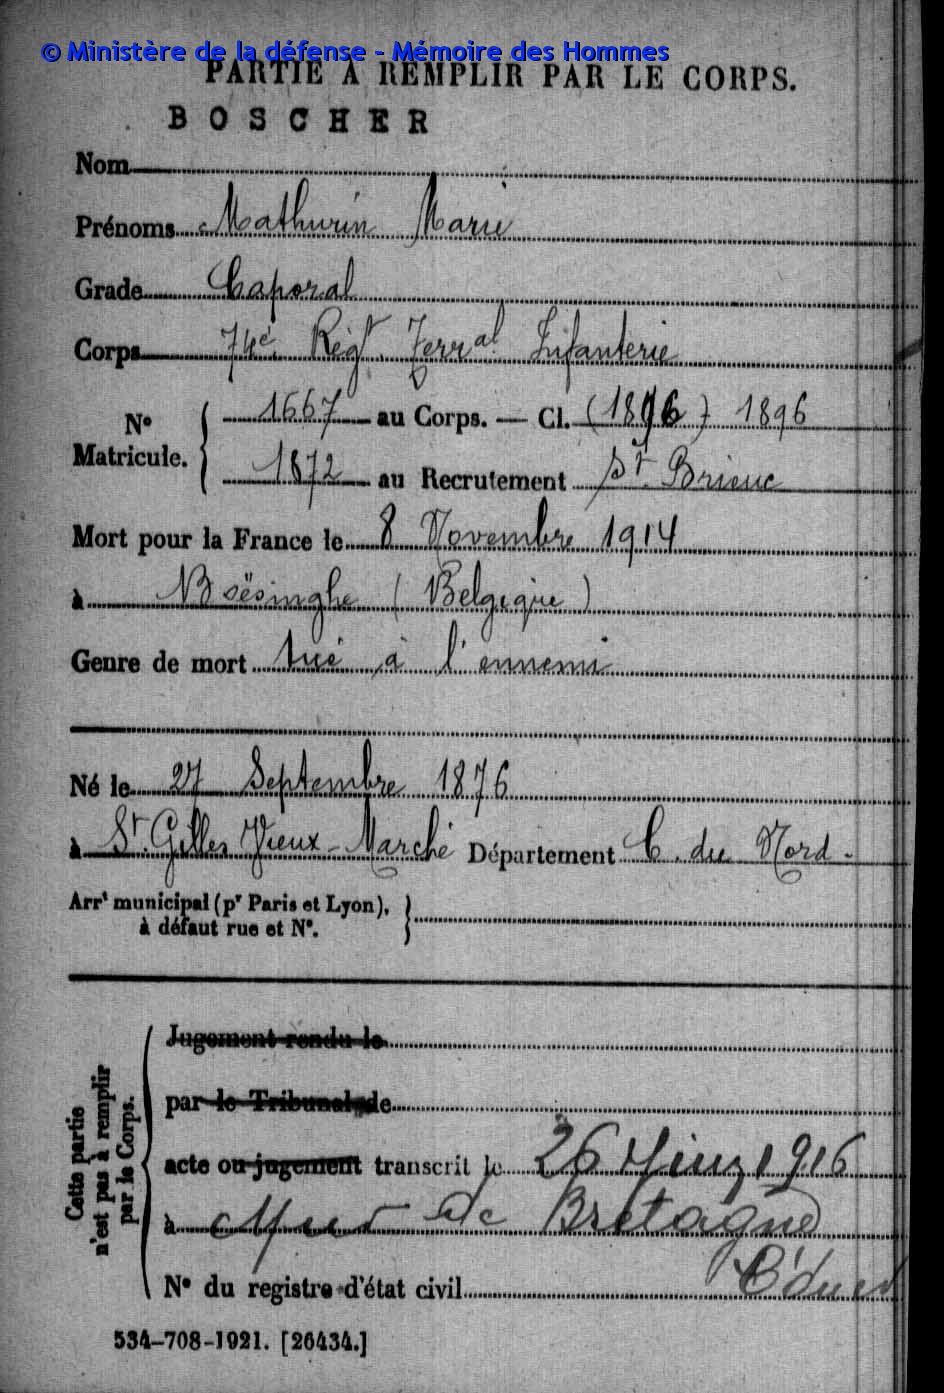 © Ministère de la défense - Mémoire des Hommes
PARTIE À REMPLIR PAR LE CORPS.
BOSCHER
Nom
Prénoms Mathurin Marie
Grade Caporal
Corps 74e Régt Terral Infanterie
No 1667 au Corps. — Cl. (1896) 1896
Matricule. 1872 au Recrutement St. Brieuc
Mort pour la France le 8 Novembre 1914
à Boësinghe (Belgique)
Genre de mort tué à l'ennemi
Né le 27 Septembre 1876
à St. Gilles Vieux-Marché Département C. du Nord.
Arrt municipal (pr Paris et Lyon),
à défaut rue et No.
Cette partie
n'est pas à remplir
par le Corps.
Jugement rendu le
par le Tribunal de
acte ou jugement transcrit le 26 1916
à Mur de Bretagne
C. du N
No du registre d'état civil
534-708-1921. [26434.]